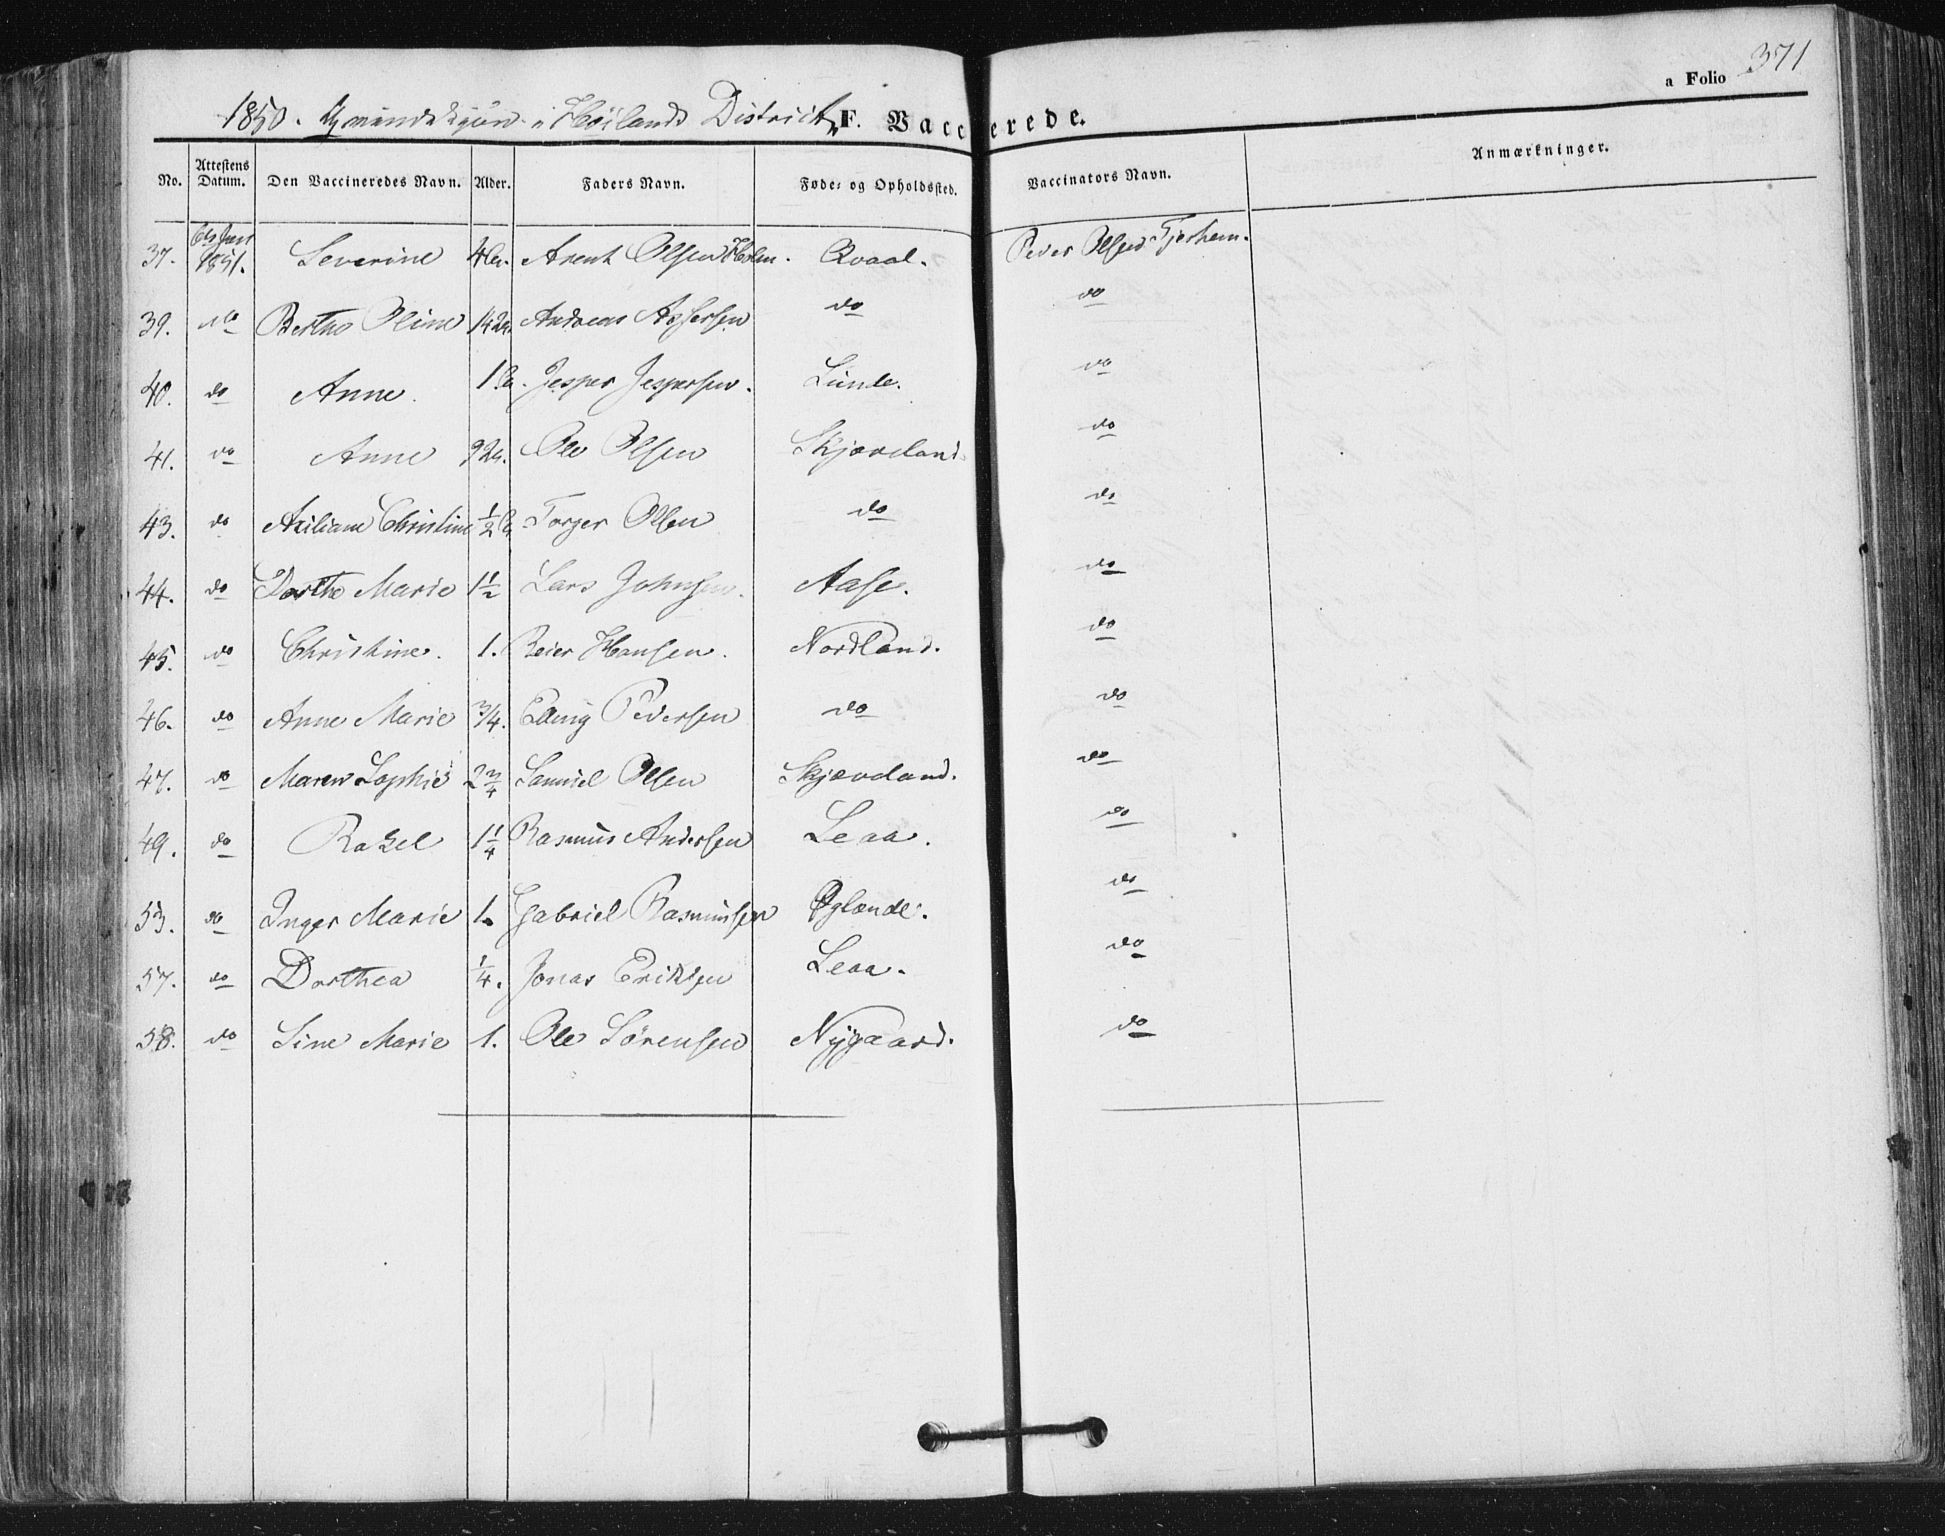 a Folio 371
1850. Qvindekjön i Höilands District, F. Vaccinerede.
No. Attestens Datum. Den Vaccineredes Navn. Alder. Faders Navn. Føde- og Opholdssted. Vaccinators Navn. Anmærkninger.
37. 1851. Severine Arent Olsen Holm. Qvaal. Peder Olsen Tjerhem.
39. do Berthe Oline Andreas Assersen do do
40. do Anne. Jesper Jespersen. Lunde. do
41. do Anne Ole Olsen Skjæveland do
43. do Axiliane Christine 1/2 Torger Olsen do do
44. do Dorthe Marie 1 1/2 Lars Johnsen. Aase. do
45. do Christine. 1. Reier Hansen. Nordland. do
46. do Anne Marie 3/4. Pedersen do do
47. do Maren Sophie 2 3/4 Samuel Olsen Skjæveland. do
49. do Rakel 1 1/4 Rasmus Andersen Leaa. do
53. do Inger Marie 1. Gabriel Rasmussen Øglænde. do
57. do Dorthea 1/4. Jonas Eriksen Leaa. do
58. do Sine Marie 1. Ole Sørensen Nygaard. do